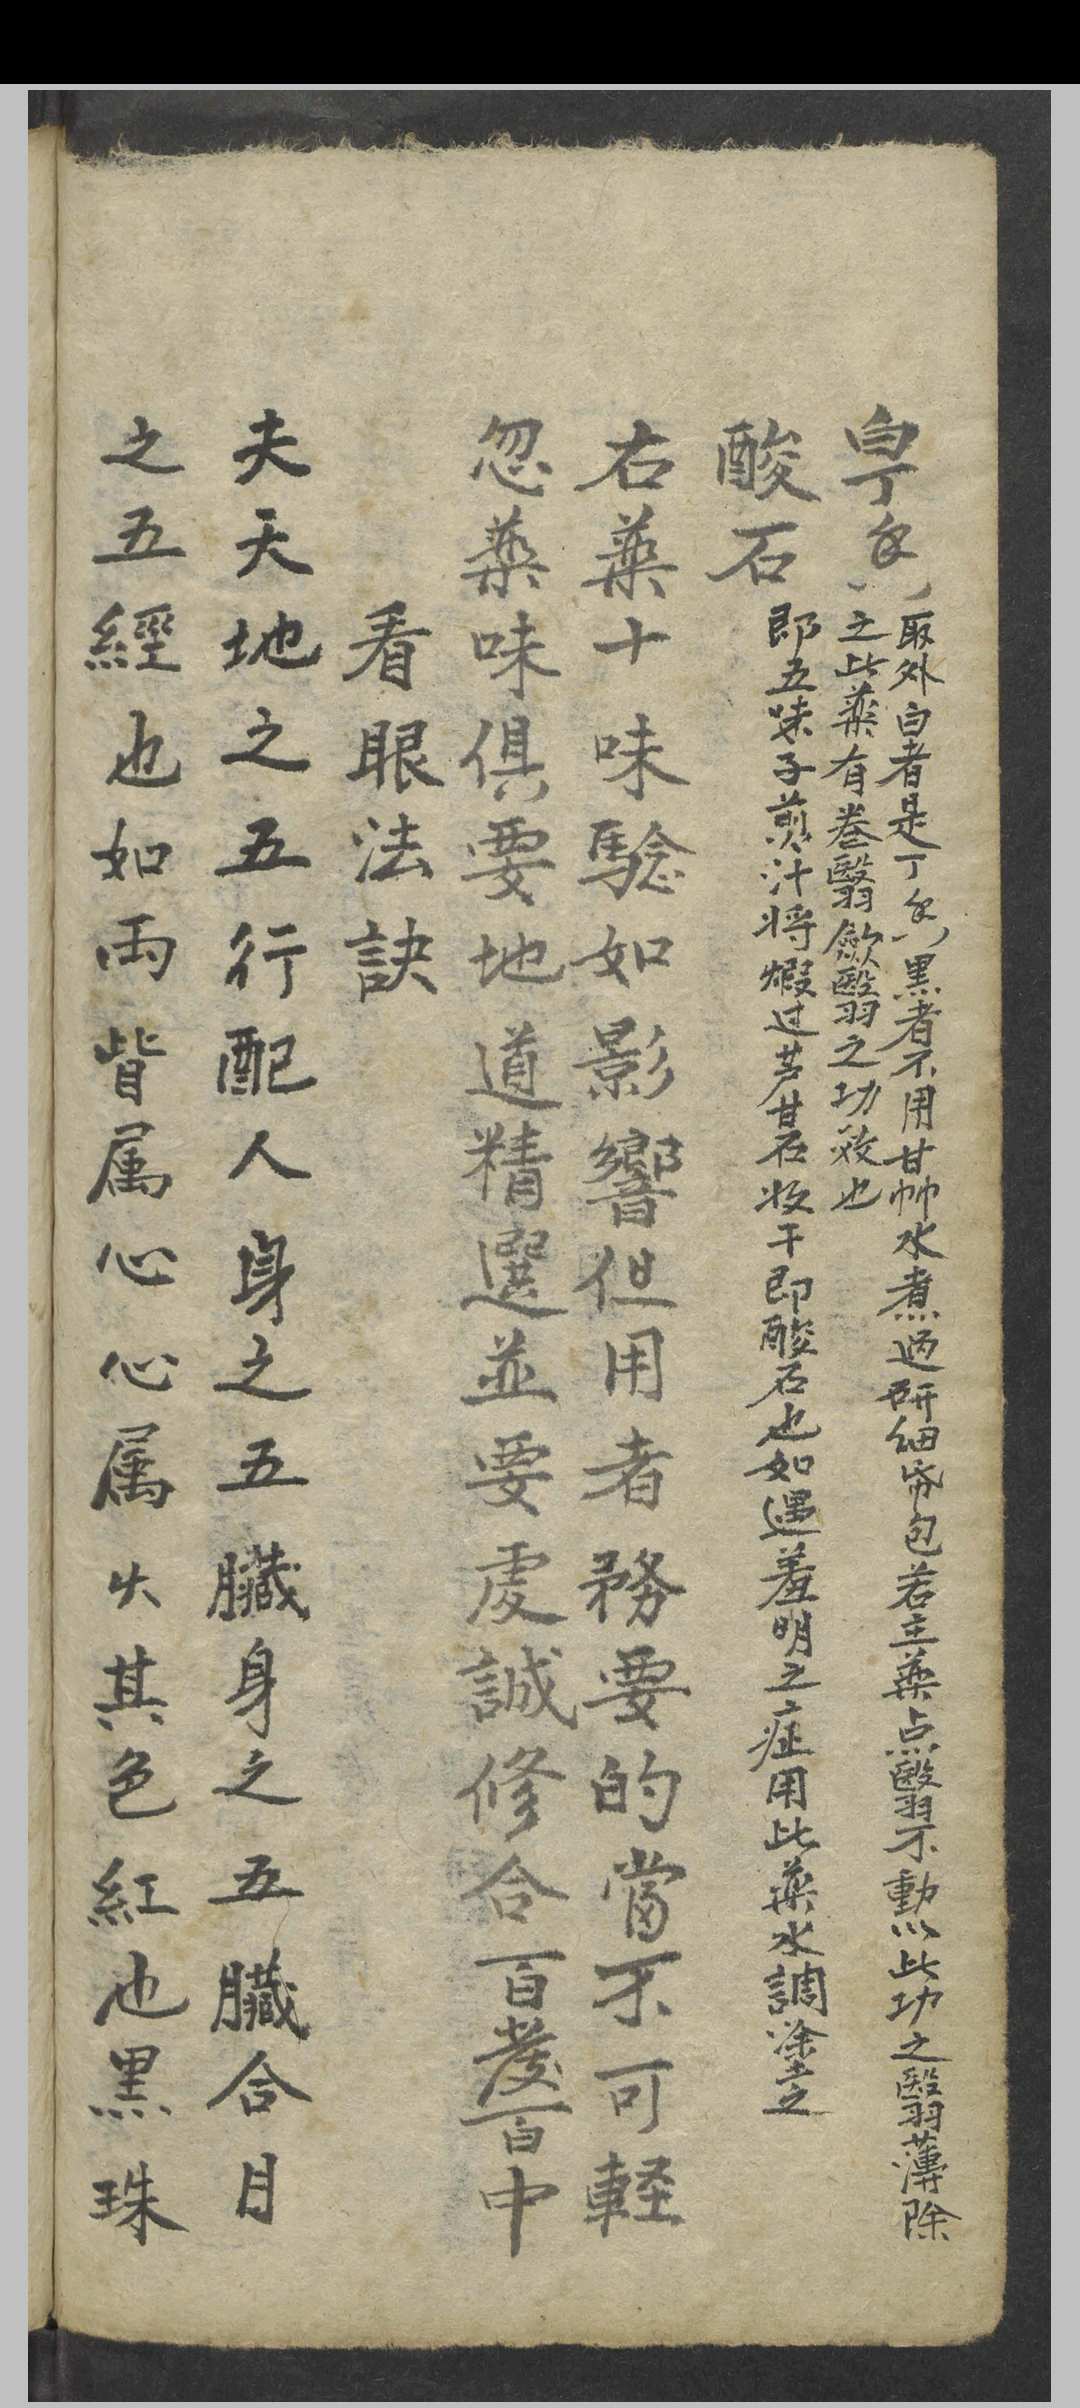 白丁香
取外白者是丁香黒者不用甘艸水煮过研细帋包若主药点翳不動以此功之翳薄除
之此药有卷翳歛翳之功效也
酸石
即五味子煎汁将煆过芦甘石收干即酸石也如遇羞明之症用此药水調塗之
右药十味騐如影響但用者務要的當不可軽
忽药味俱要地道精選並要虔誠修合百發百中
看眼法訣
夫天地之五行配人身之五臟身之五臟合目
之五經也如両眥属心心属火其色紅也黒珠